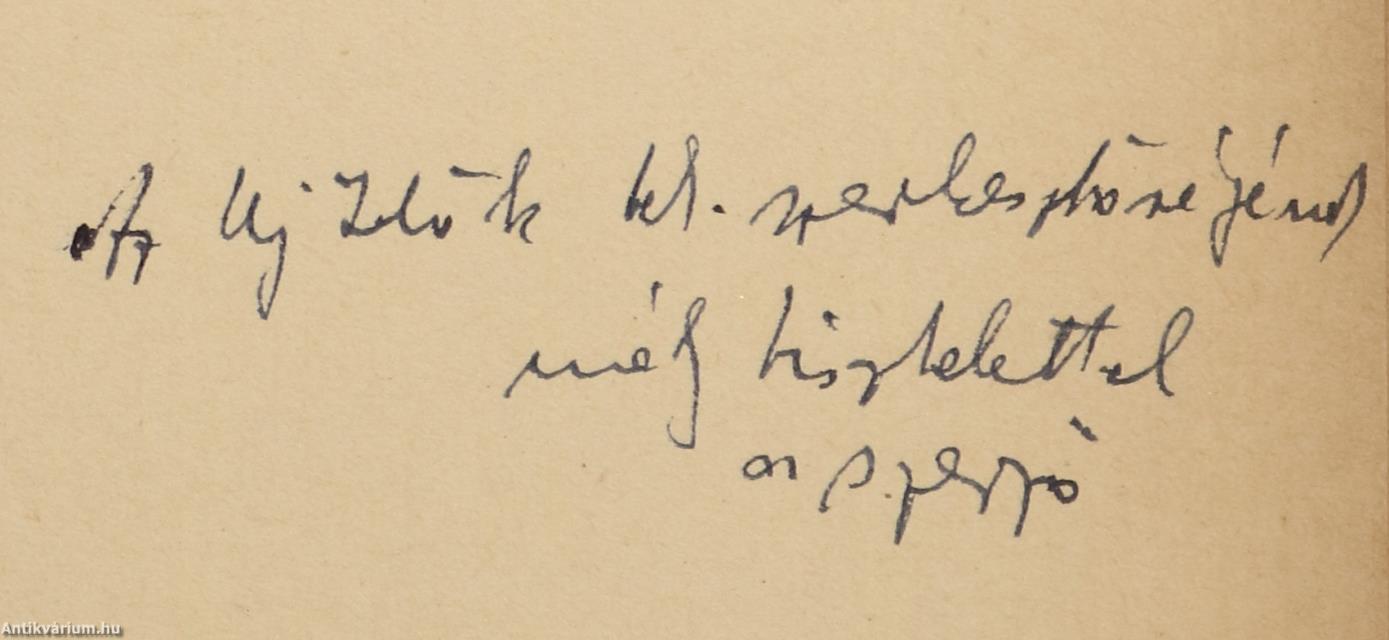 Az Uj Idők kt. szerkesztőségének
mély tisztelettel
a szerző
Antikvárium.hu